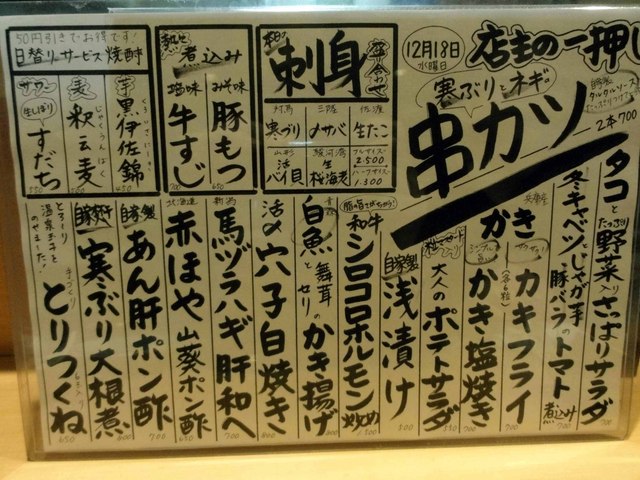 12月18日
水曜日
店主の一押し
寒ぶりとネギの
串カツ
自家製
タルタルソース
たっぷりつけて
2本700
本日の
刺身
盛り合わせ
対馬
寒ブリ
三陸
〆サバ
佐渡
生たこ
山形
活バイ貝
駿河湾
生桜海老
フルサイズ
2.500
ハーフサイズ
1.300
熱々
煮込み
みそ味
豚もつ
650
塩味
牛すじ
700
50円引きでお得です!
日替りサービス焼酎
芋
くろいさにしき
黒伊佐錦
450
麦
じゃくうんばく
釈云麦
500
サワー
生しぼり
すだち
550
タコと
たっぷり
野菜入り
さっぱりサラダ
冬キャベツとじゃが芋
豚バラのトマト
煮込み
兵庫産
かき
サクサク
(各6粒)
カキフライ
700
シンプルで旨い
かき塩焼き
700
粒マスタード
大人のポテトサラダ
550
自家製
浅漬け
500
脂の旨さがちがう!
和牛
シロコロホルモン
炒め
青森
白魚と
舞茸の
セリの
かき揚げ
700
活〆
穴子白焼き
800
新潟
馬ヅラハギ肝和へ
700
北海道
赤ほや
山葵ポン酢
自家製
あん肝ポン酢
700
寒ぶり大根煮
800
とろ〜り
温泉玉子と
のせました!
手づくり
とりつくね
650